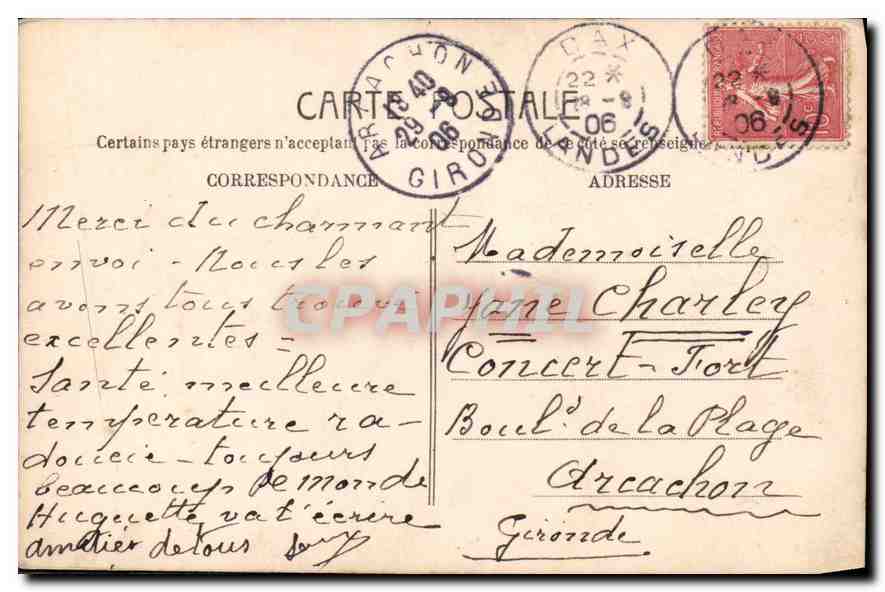 CARTE POSTALE
Certains pays étrangers n'acceptant pas la correspondance de ce côté se renseigner
CORRESPONDANCE
ADRESSE
ARCACHON
18 40
29 - 8
06
GIRONDE
DAX
22 *
28 - 8
06
LANDES
DAX
22 *
8
06
LANDES
10
Merci du charmant
envoi - Nous les
avons tous trouvés
excellentes =
Santé meilleure
température ra-
doucie - toujours
beaucoup de monde
Huguette va t'écrire
amitiés de tous
Mademoiselle
Yane Charley
Concert-Fort
Boul.d de la Plage
Arcachon
Gironde
CPAPHIL